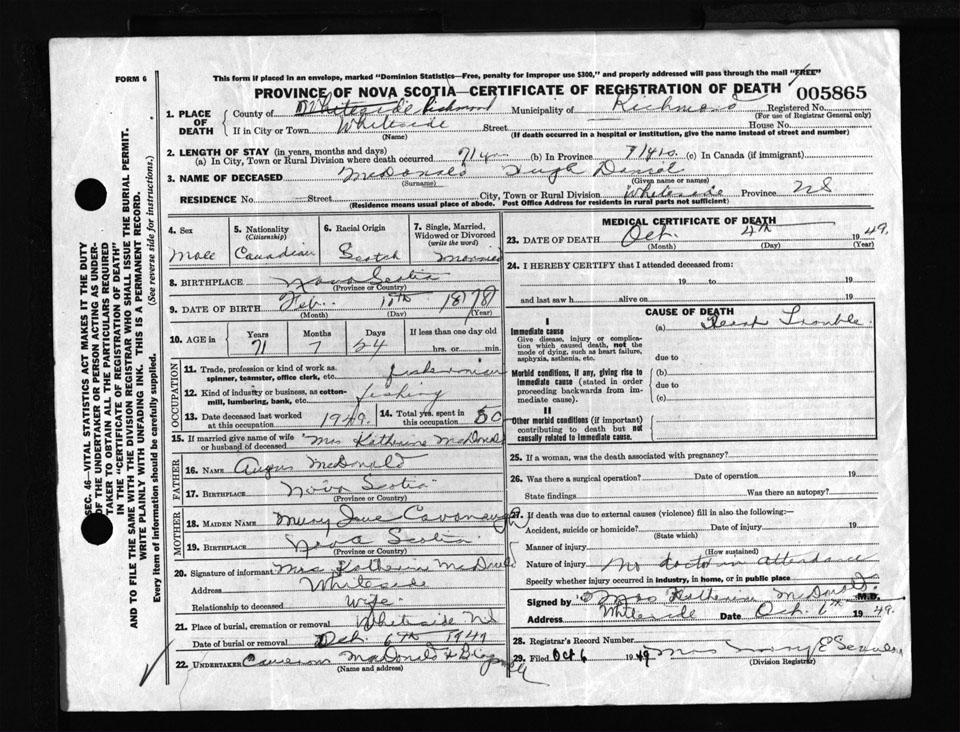 FORM 6
This form if placed in an envelope, marked "Dominion Statistics—Free, penalty for improper use $300," and properly addressed will pass through the mail "FREE"
PROVINCE OF NOVA SCOTIA—CERTIFICATE OF REGISTRATION OF DEATH 005865
1. PLACE OF DEATH
County of Whiteside Richmond Municipality of Richmond Registered No.
(For use of Registrar General only)
If in City or Town Whiteside Street House No.
(Name) (If death occurred in a hospital or institution, give the name instead of street and number)
2. LENGTH OF STAY (in years, months and days)
(a) In City, Town or Rural Division where death occurred 71 yrs (b) In Province 71 yrs. (c) In Canada (if immigrant)
3. NAME OF DECEASED McDonald Hugh Daniel
(Surname) (Given name or names)
RESIDENCE No. Street City, Town or Rural Division Whiteside Province NS
(Residence means usual place of abode. Post Office Address for residents in rural parts not sufficient)
4. Sex 5. Nationality (Citizenship) 6. Racial Origin 7. Single, Married, Widowed or Divorced (write the word)
Male Canadian Scotch Married
8. BIRTHPLACE Nova Scotia
(Province or Country)
9. DATE OF BIRTH Feb. 10th 1878
(Month) (Day) (Year)
10. AGE in Years Months Days If less than one day old
71 7 24 hrs. or min.
OCCUPATION
11. Trade, profession or kind of work as spinner, teamster, office clerk, etc. fisherman
12. Kind of industry or business, as cotton-mill, lumbering, bank, etc. fishing
13. Date deceased last worked at this occupation 1949. 14. Total yrs. spent in this occupation 50
15. If married give name of wife or husband of deceased Mrs Katherine McDonald
FATHER
16. NAME Angus McDonald
17. BIRTHPLACE Nova Scotia
(Province or Country)
MOTHER
18. MAIDEN NAME Mary Jane Cavanaugh
19. BIRTHPLACE Nova Scotia
(Province or Country)
20. Signature of informant Mrs Katherine McDonald
Address Whiteside
Relationship to deceased Wife
21. Place of burial, cremation or removal Whiteside NS
Date of burial or removal Oct. 6th 1949
22. UNDERTAKER Cameron McDonald &
(Name and address)
MEDICAL CERTIFICATE OF DEATH
23. DATE OF DEATH Oct. 4th 1949.
(Month) (Day) (Year)
24. I HEREBY CERTIFY that I attended deceased from:
19 to 19
and last saw h alive on 19
CAUSE OF DEATH
I
Immediate cause (a) Heart Trouble.
Give disease, injury or complication which caused death, not the mode of dying, such as heart failure, asphyxia, asthenia, etc.
due to
Morbid conditions, if any, giving rise to immediate cause (stated in order proceeding backwards from immediate cause).
(b)
due to
(c)
II
Other morbid conditions (if important) contributing to death but not causally related to immediate cause.
25. If a woman, was the death associated with pregnancy?
26. Was there a surgical operation? Date of operation 19
State findings Was there an autopsy?
27. If death was due to external causes (violence) fill in also the following:—
Accident, suicide or homicide? Date of injury 19
(State which)
Manner of injury
(How sustained)
Nature of injury No doctor in attendance
Specify whether injury occurred in industry, in home, or in public place
Signed by Mrs Katherine McDonald M.D.
Address Whiteside Date Oct. 6th 1949.
28. Registrar's Record Number
29. Filed Oct 6 1949 Mrs Mary E
(Division Registrar)
SEC. 46—VITAL STATISTICS ACT MAKES IT THE DUTY
OF THE UNDERTAKER OR PERSON ACTING AS UNDER-
TAKER TO OBTAIN ALL THE PARTICULARS REQUIRED
IN THE "CERTIFICATE OF REGISTRATION OF DEATH"
AND TO FILE THE SAME WITH THE DIVISION REGISTRAR WHO SHALL ISSUE THE BURIAL PERMIT.
WRITE PLAINLY WITH UNFADING INK. THIS IS A PERMANENT RECORD.
Every item of information should be carefully supplied. (See reverse side for instructions.)